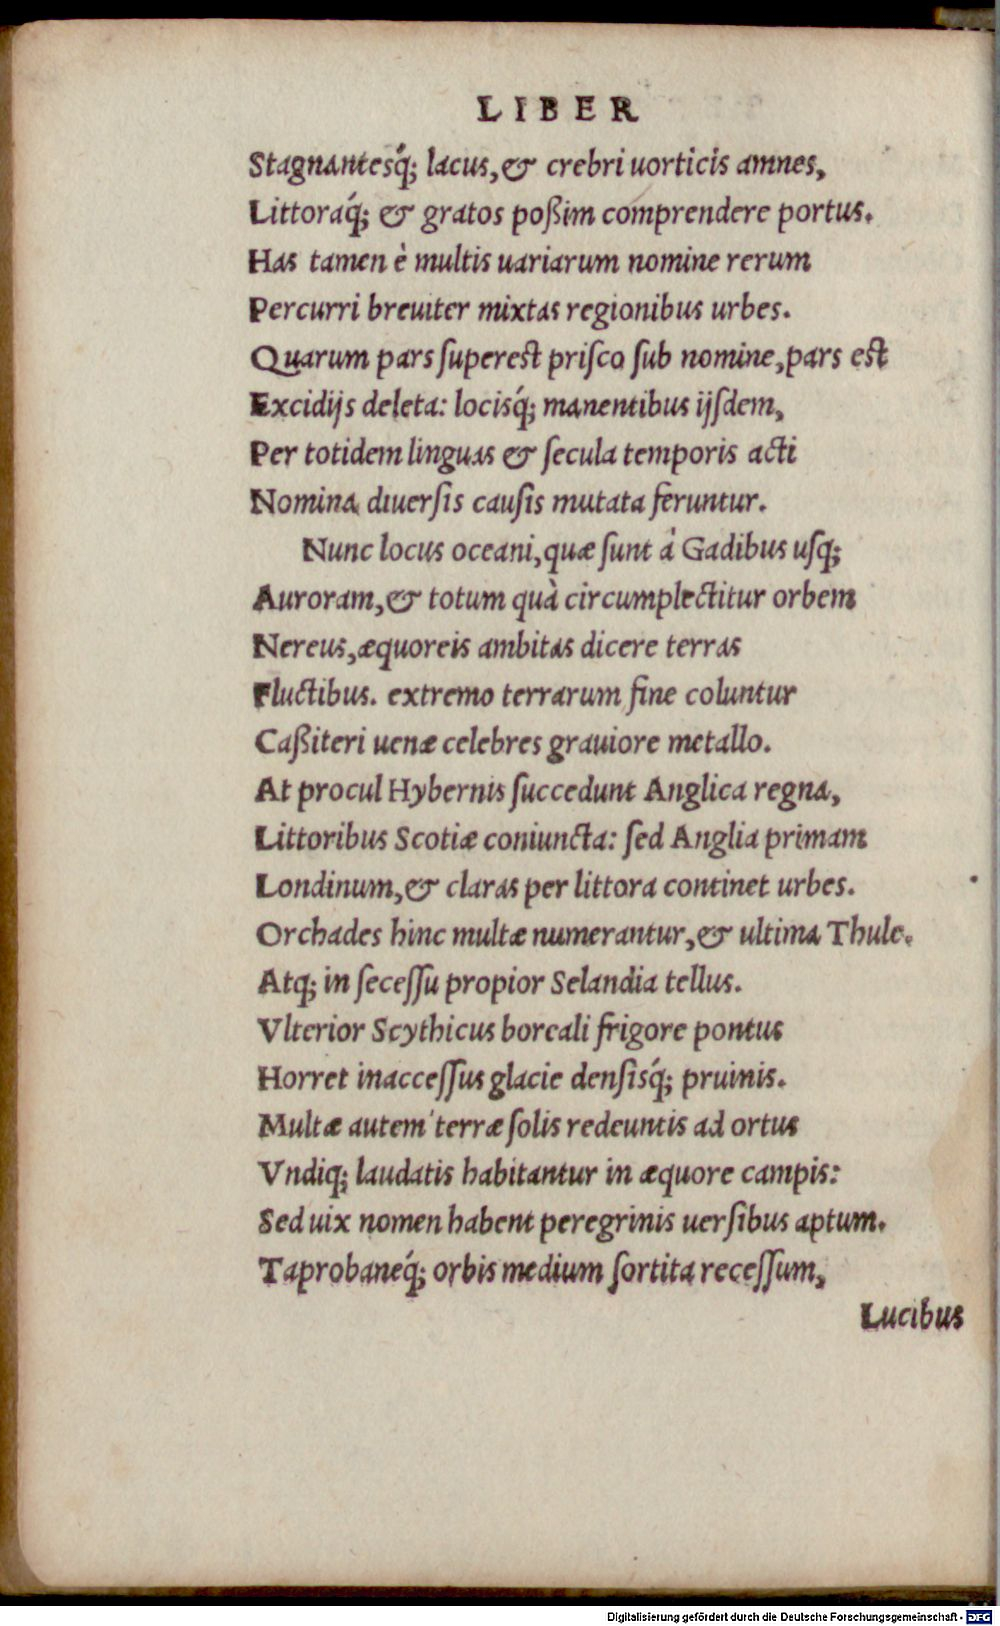 LIBER
Stagnantesq́; lacus,& crebri uorticis amnes,
Littoraq́; & gratos poßim comprendere portus.
Has tamen è multis uariarum nomine rerum
Percurri breuiter mixtas regionibus urbes.
Quarum pars ſupereſt priſco ſub nomine,pars eſt
Excidijs deleta: locisq́; manentibus ijſdem,
Per totidem linguas & ſecula temporis acti
Nomina diuerſis cauſis mutata feruntur.
Nunc locus oceani,quæ ſunt à Gadibus uſq;
Auroram,& totum quà circumplectitur orbem
Nereus,æquoreis ambitas dicere terras
Fluctibus. extremo terrarum fine coluntur
Caßiteri uenæ celebres grauiore metallo.
At procul Hybernis ſuccedunt Anglica regna,
Littoribus Scotiæ coniuncta: ſed Anglia primam
Londinum,& claras per littora continet urbes.
Orchades hinc multæ numerantur,& ultima Thule.
Atq; in ſeceſſu propior Selandia tellus.
Vlterior Scythicus boreali frigore pontus
Horret inacceſſus glacie denſisq́; pruinis.
Multæ autem terræ ſolis redeuntis ad ortus
Vndiq; laudatis habitantur in æquore campis:
Sed uix nomen habent peregrinis uerſibus aptum.
Taprobaneq́; orbis medium ſortita receſſum,
Lucibus
Digitalisierung gefördert durch die Deutsche Forschungsgemeinschaft - DFG